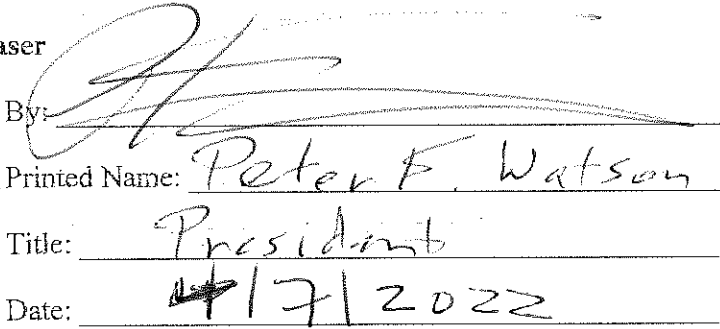 aser
By:
Printed Name: Peter F. Watson
Title: President
Date: 4/7/2022